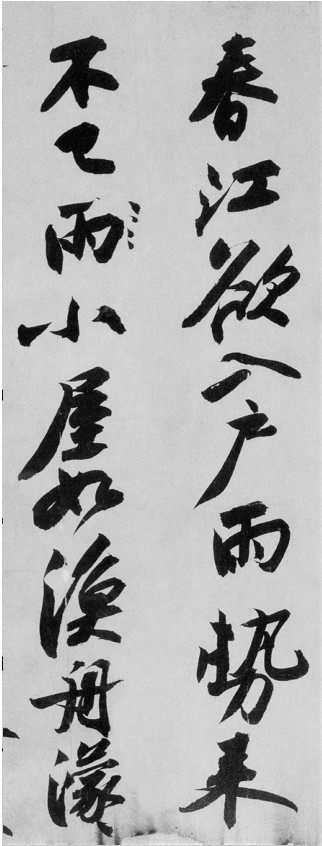 春江欲入戶雨勢來
不已雨小屋如漁舟濛